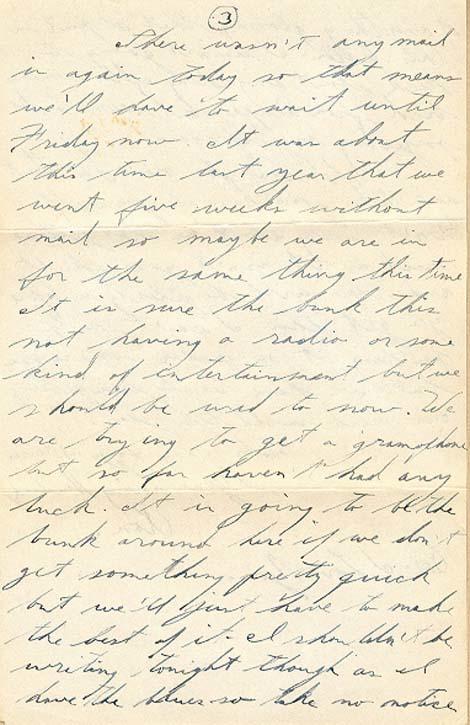 3
There wasn't any mail
in again today so that means
we'll have to wait until
Friday now. It was about
this time last year that we
went five weeks without
mail so maybe we are in
for the same thing this time
It is sure the bunk this
not having a radio or some
kind of entertainment but we
should be used to now. We
are trying to get a gramophone
but so far haven't had any
luck. It is going to be the
bunk around here if we don't
get something pretty quick
but we'll just have to make
the best of it. I shouldn't be
writing tonight though as I
have the blues so take no notice